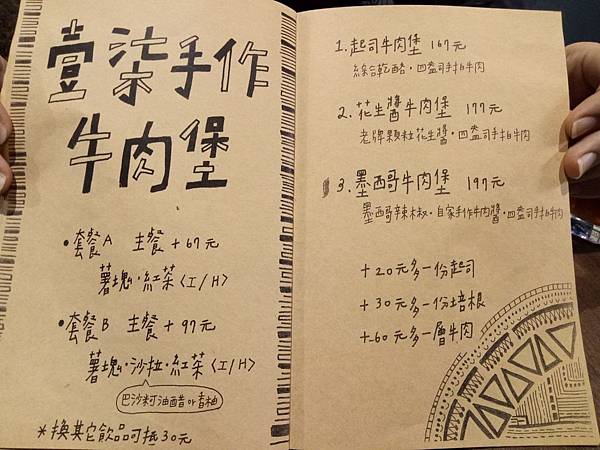 壹柒手作
牛肉堡
•套餐A 主餐+67元
薯塊·紅茶<I/H>
•套餐B 主餐+97元
薯塊·沙拉·紅茶<I/H>
巴沙米可油醋or香柚
*換其它飲品可抵30元
1.起司牛肉堡 167元
綜合乾酪·四盎司手拍牛肉
2.花生醬牛肉堡 177元
老牌顆粒花生醬·四盎司手拍牛肉
3.墨西哥牛肉堡 197元
墨西哥辣椒·自家手作牛肉醬·四盎司手拍牛肉
+20元多一份起司
+30元多一份培根
+60元多一層牛肉